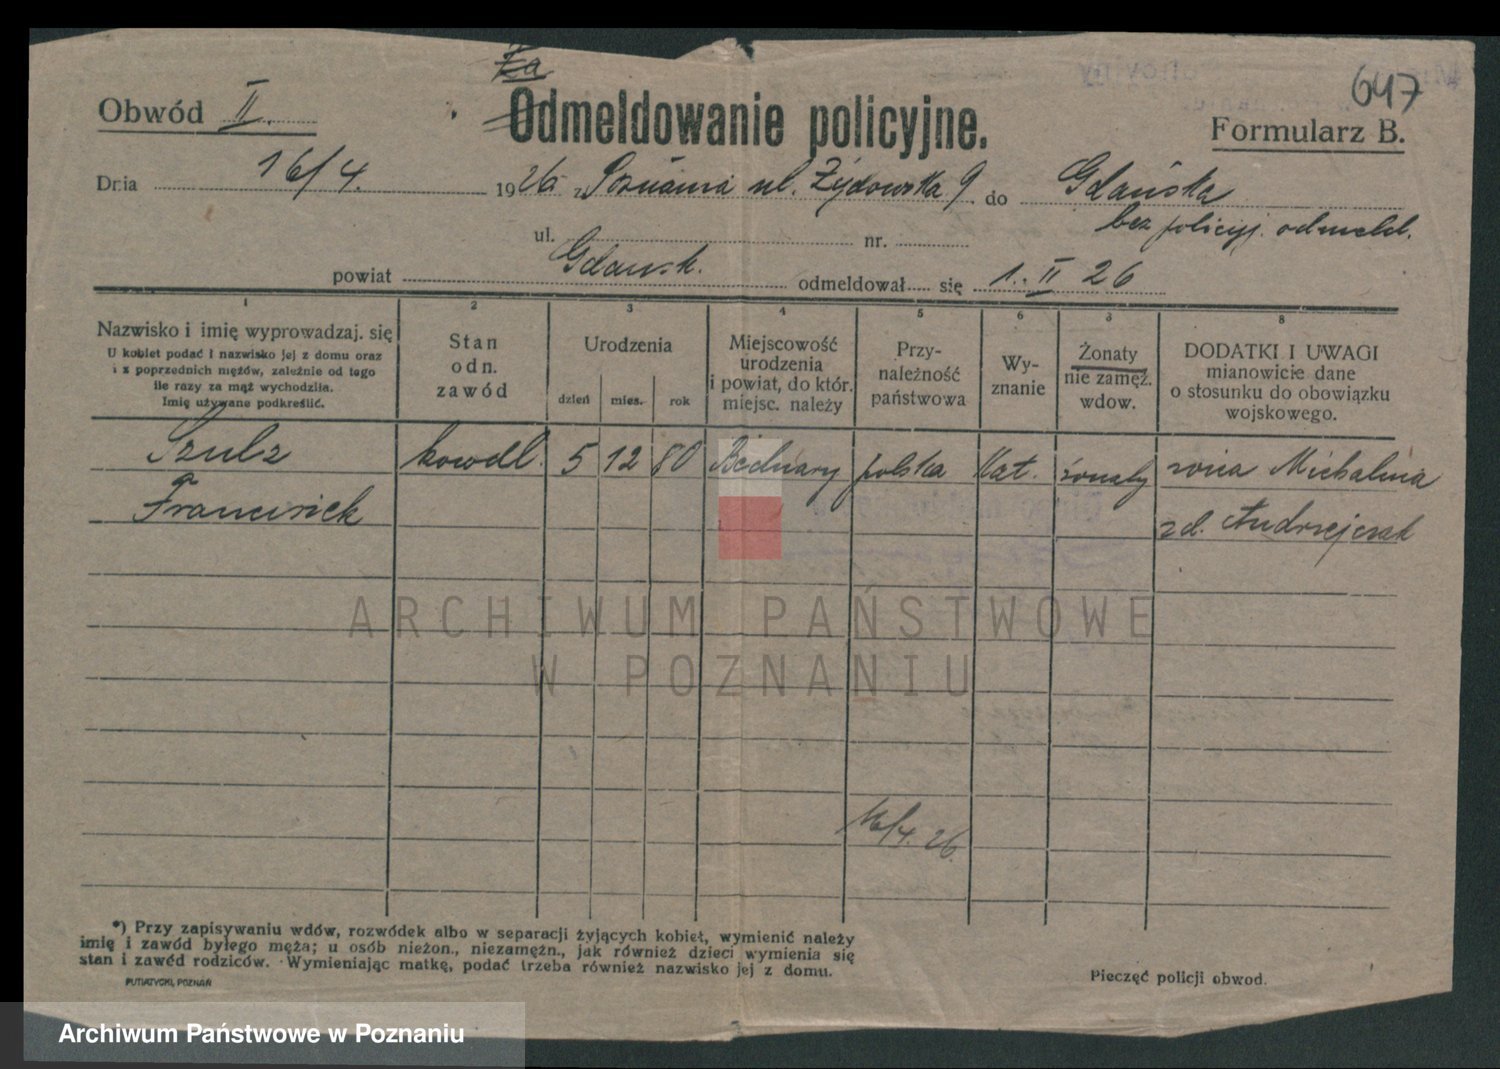 647
Za
Obwód II.
Odmeldowanie policyjne.
Formularz B.
Dnia 16/4. 1926 z Poznania ul. Żydowska 9. do Gdańska
bez policyj. odmeld.
ul. nr.
powiat Gdańsk. odmeldował się 1. II 26
1 2 3 4 5 6 3 8
Nazwisko i imię wyprowadzaj. się
U kobiet podać i nazwisko jej z domu oraz
i z poprzednich mężów, zależnie od tego
ile razy za mąż wychodziła.
Imię używane podkreślić.
Stan
odn.
zawód
Urodzenia
dzień mies. rok
Miejscowość
urodzenia
i powiat, do któr.
miejsc. należy
Przy-
należność
państwowa
Wy-
znanie
Żonaty
nie zamęż.
wdow.
DODATKI I UWAGI
mianowicie dane
o stosunku do obowiązku
wojskowego.
Szulz kowal. 5 12 80 Bednary polska Kat. żonaty żona Michalina
Franciszek zd. Andrzejczak
16/4. 26
ARCHIWUM PAŃSTWOWE
W POZNANIU
*) Przy zapisywaniu wdów, rozwódek albo w separacji żyjących kobiet, wymienić należy
imię i zawód byłego męża; u osób nieżon., niezamężn., jak również dzieci wymienia się
stan i zawód rodziców. Wymieniając matkę, podać trzeba również nazwisko jej z domu.
PUTIATYCKI, POZNAŃ
Pieczęć policji obwod.
Archiwum Państwowe w Poznaniu